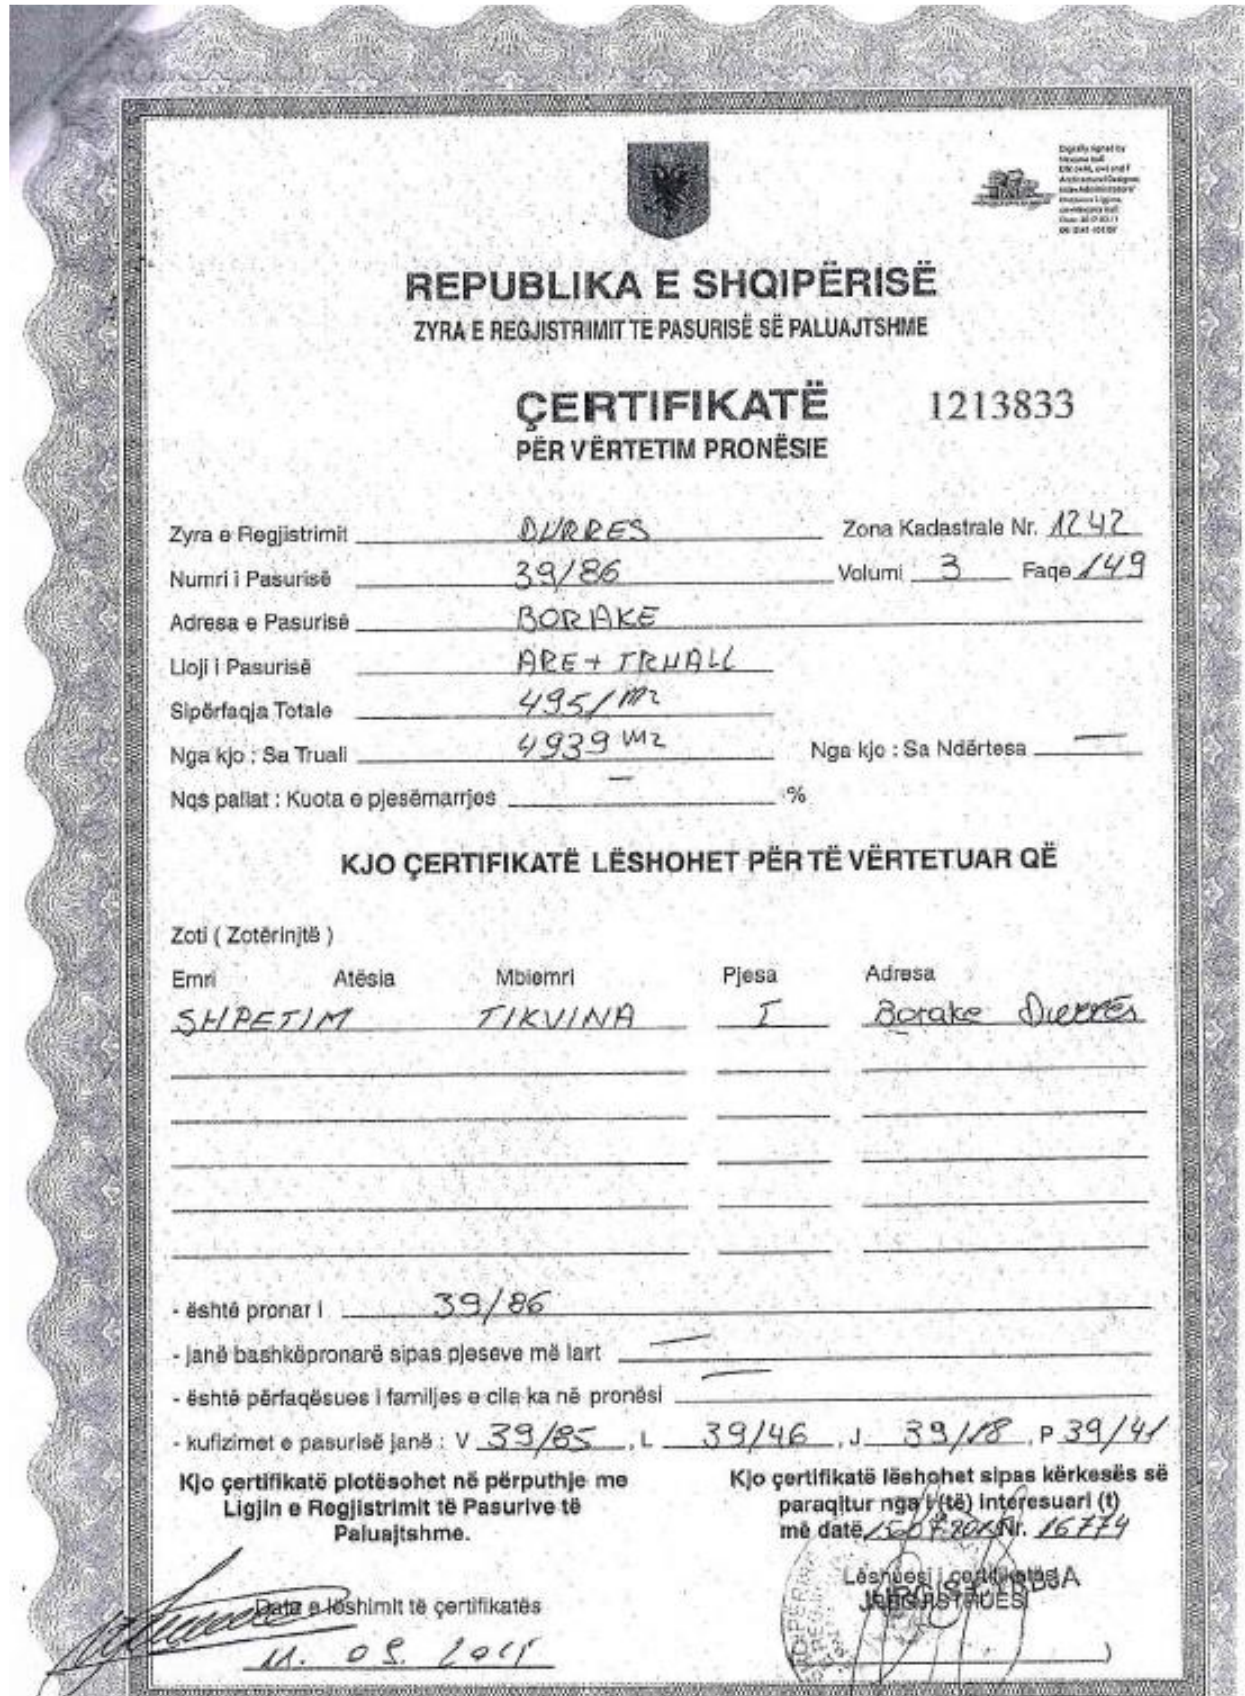 Digitally signed by
REPUBLIKA E SHQIPËRISË
ZYRA E REGJISTRIMIT TE PASURISË SË PALUAJTSHME
ÇERTIFIKATË 1213833
PËR VËRTETIM PRONËSIE
Zyra e Regjistrimit DURRES Zona Kadastrale Nr. 1242
Numri i Pasurisë 39/86 Volumi 3 Faqe 149
Adresa e Pasurisë BORAKE
Lloji i Pasurisë ARE + TRUALL
Sipërfaqja Totale 4951 m2
Nga kjo : Sa Trualli 4939 m2 Nga kjo : Sa Ndërtesa —
Nqs pallat : Kuota e pjesëmarrjes — %
KJO ÇERTIFIKATË LËSHOHET PËR TË VËRTETUAR QË
Zoti ( Zotërinjtë )
Emri Atësia Mbiemri Pjesa Adresa
SHPETIM TIKVINA I Borake Durrës
- është pronar i 39/86
- janë bashkëpronarë sipas pjeseve më lart —
- është përfaqësues i familjes e cila ka në pronësi —
- kufizimet e pasurisë janë : V 39/85 , L 39/46 , J 39/18 , P 39/41
Kjo çertifikatë plotësohet në përputhje me
Ligjin e Regjistrimit të Pasurive të
Paluajtshme.
Kjo çertifikatë lëshohet sipas kërkesës së
paraqitur nga i (të) interesuari (t)
më datë Nr. 16774
Lëshuesi i çertifikatës
Data e lëshimit të çertifikatës
11. 09.